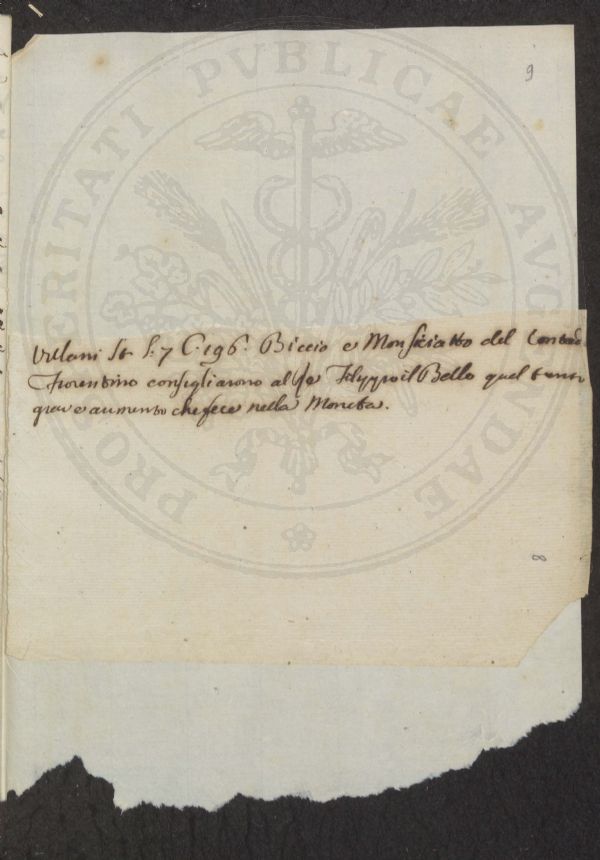 9
Villani St. L. 7 C. 196. Biccio e Monsciatto del Contado
Fiorentino consigliarono al Re Filyppo il Bello quel tanto
grave aumento che fece nella Moneta.
8
PROSPERITATI PVBLICAE AVGENDAE